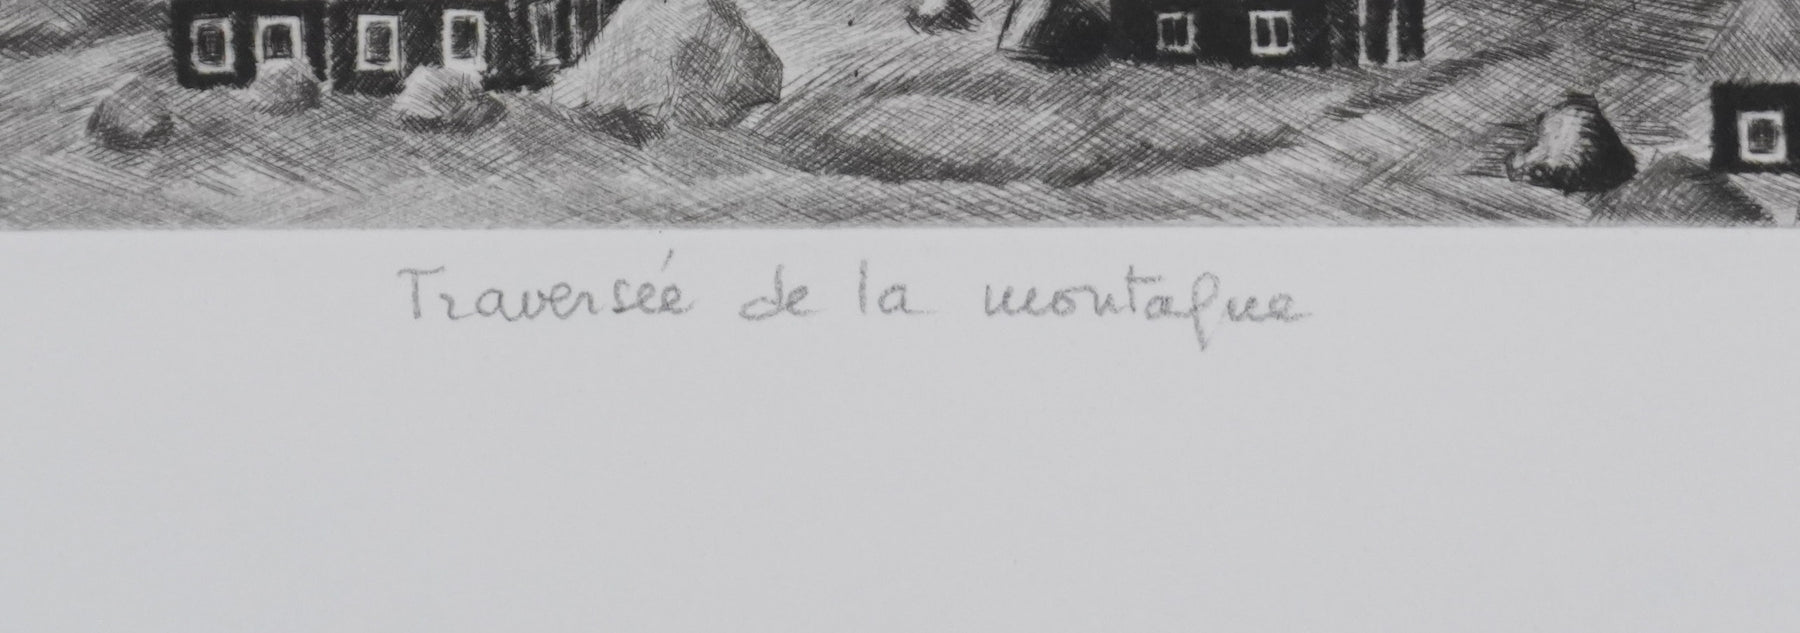 Traversée de la montagne